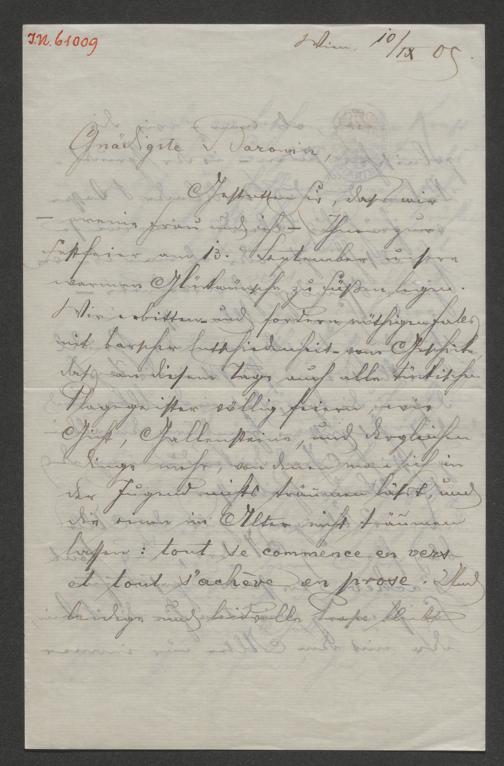 I.N. 61009
Wien, 10/IX 05
Gnädigste Baronin,
Gestatten Sie, daß wir
– meine Frau und ich – Ihnen zur
Festfeier am 13. September unsere
warmen Glückwünsche zu Füßen legen.
Wir erbitten und fordern nöthigenfalls
mit barscher Entschiedenheit vom Geschicke,
daß an diesem Tage auch alle tückischen
Plagegeister völlig feiern, wie
Gicht, Gallensteine, und dergleichen
Dinge mehr, von denen man sich in
der Jugend nichts träumen läßt, und
die einen im Alter nicht träumen
lassen: tout se commence en vers
et tout s'achève en prose. Und
leidige und leidvolle Prose bleibt